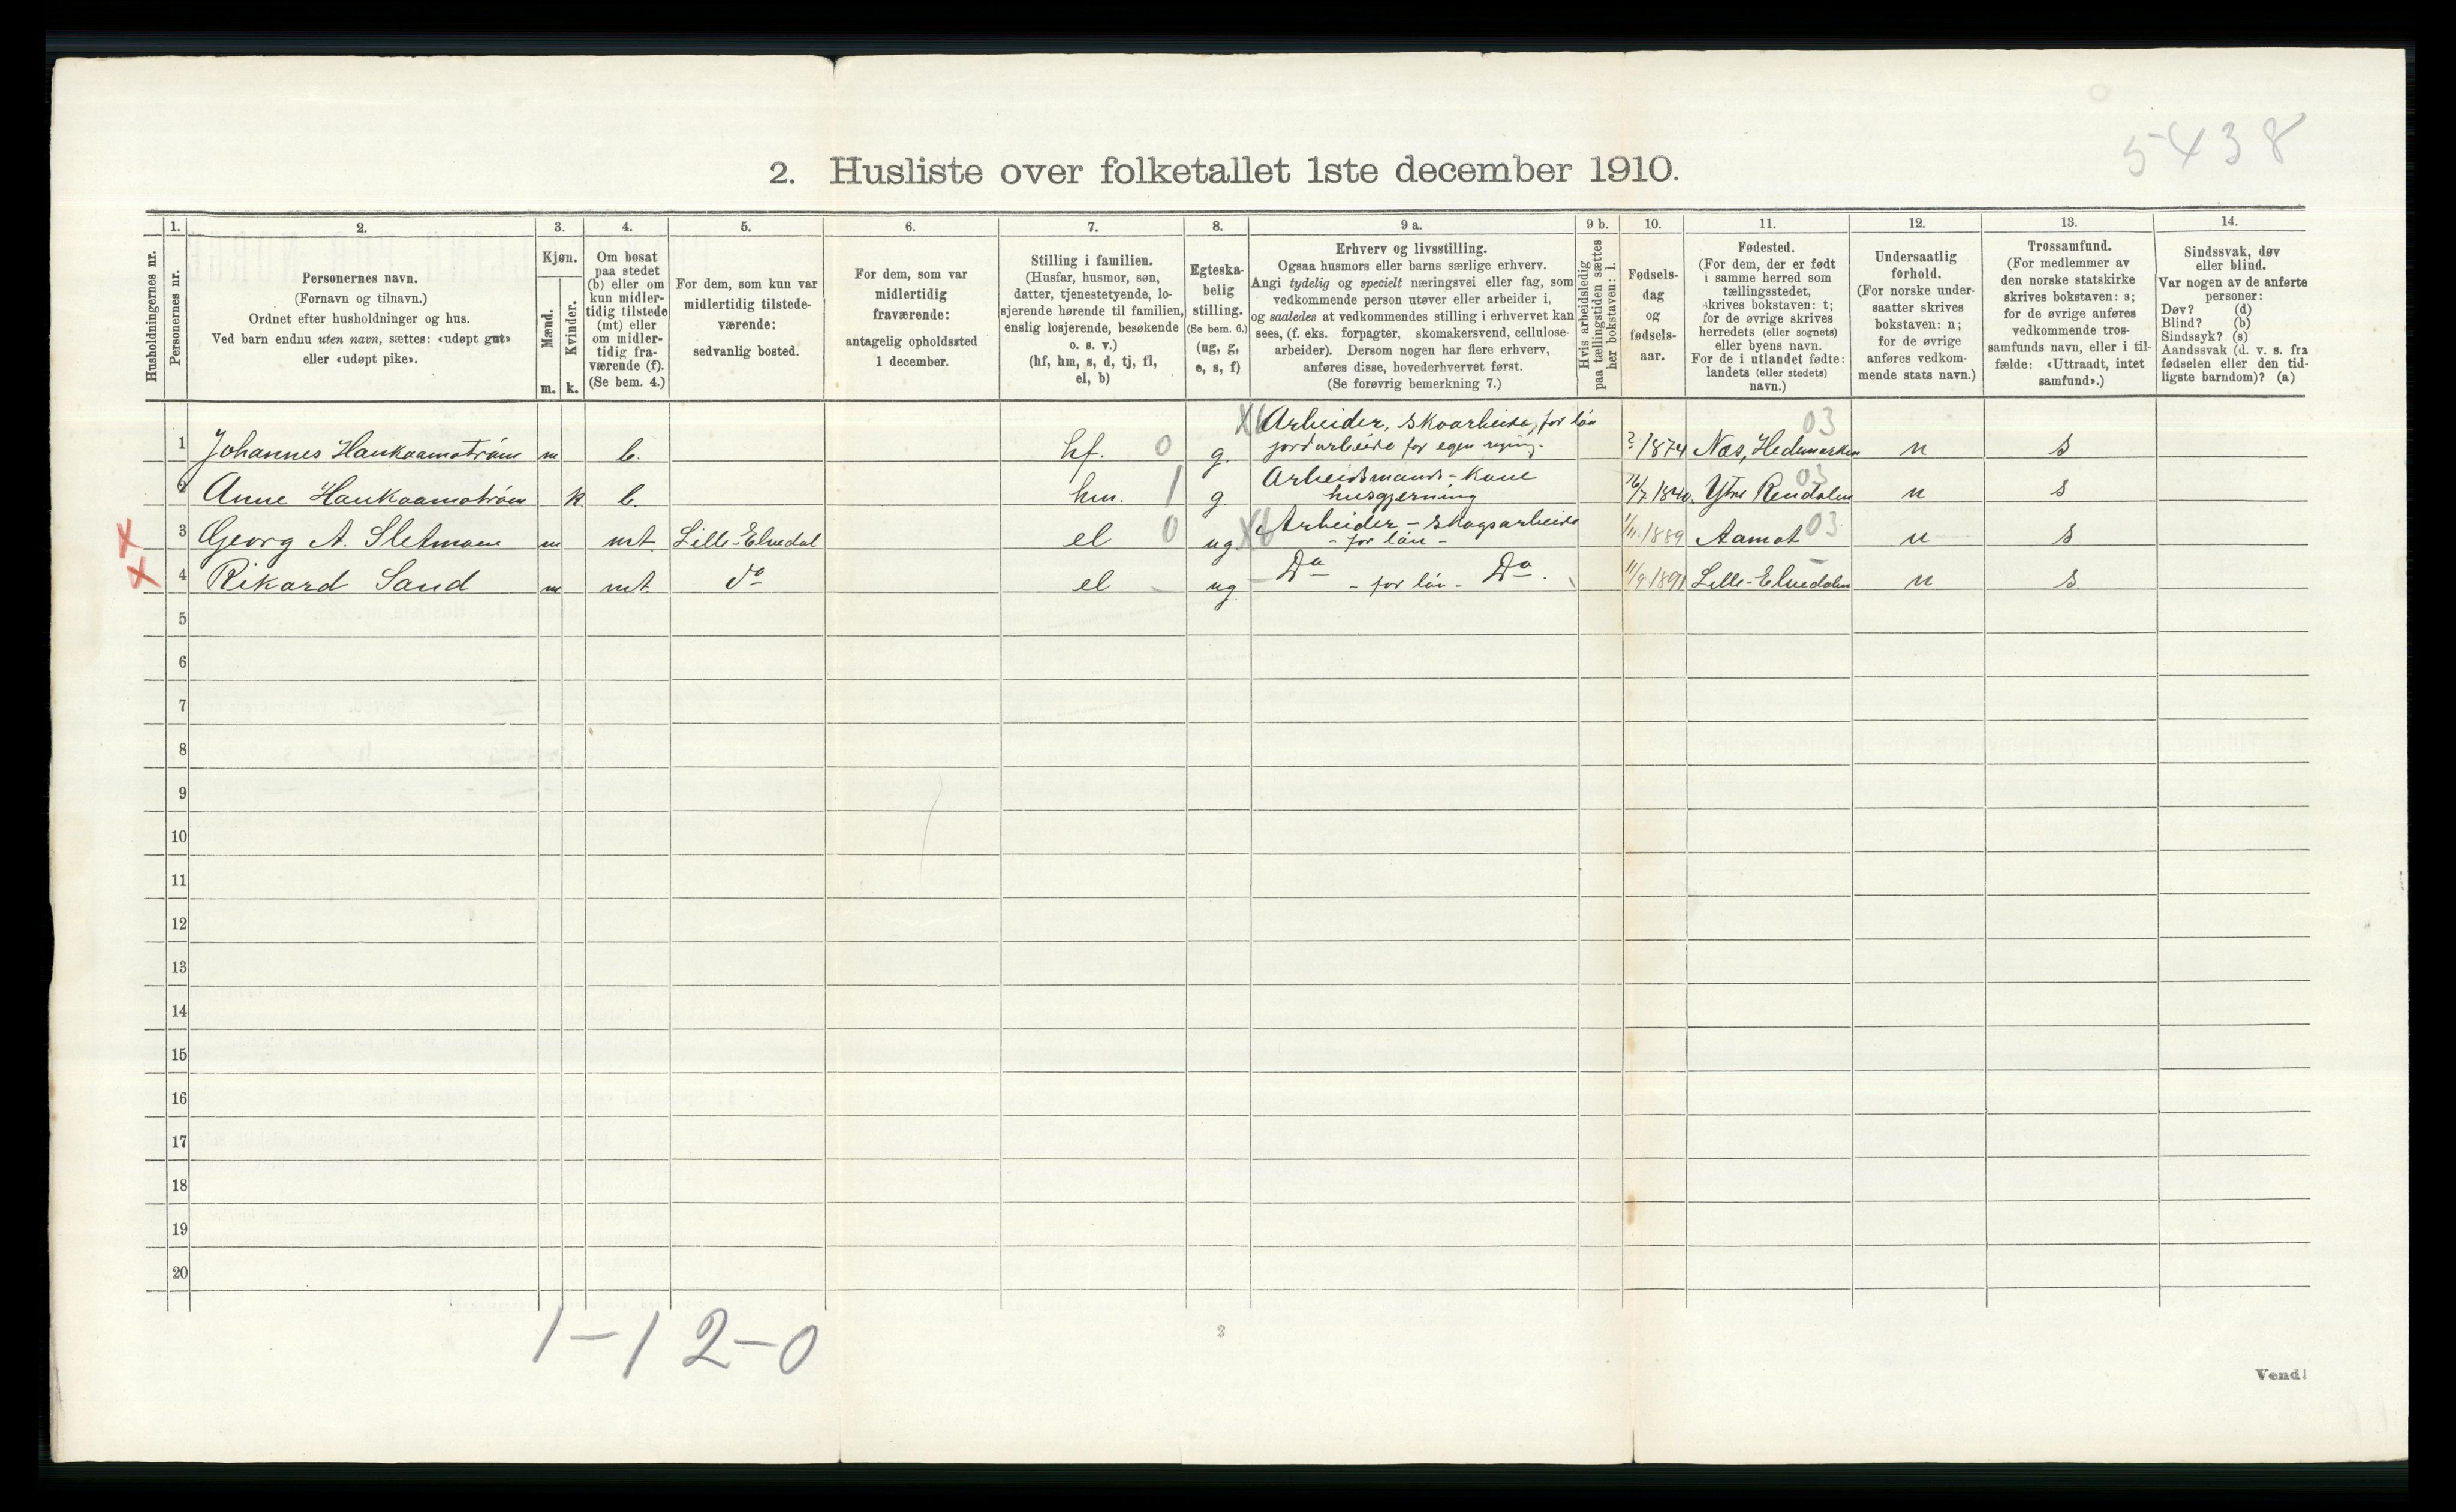 5438
2. Husliste over folketallet 1ste december 1910.
Husholdningernes nr.
1.
Personernes nr.
2.
Personernes navn.
(Fornavn og tilnavn.)
Ordnet efter husholdninger og hus.
Ved barn endnu uten navn, sættes: «udøpt gut»
eller «udøpt pike».
3.
Kjøn.
Mænd.
Kvinder.
m. k.
4.
Om bosat
paa stedet
(b) eller om
kun midler-
tidig tilstede
(mt) eller
om midler-
tidig fra-
værende (f).
(Se bem. 4.)
5.
For dem, som kun var
midlertidig tilstede-
værende:
sedvanlig bosted.
6.
For dem, som var
midlertidig
fraværende:
antagelig opholdssted
1 december.
7.
Stilling i familien.
(Husfar, husmor, søn,
datter, tjenestetyende, lo-
sjerende hørende til familien,
enslig losjerende, besøkende
o. s. v.)
(hf, hm, s, d, tj, fl,
el, b)
8.
Egteska-
belig
stilling.
(Se bem. 6.)
(ug, g,
e, s, f)
9 a.
Erhverv og livsstilling.
Ogsaa husmors eller barns særlige erhverv.
Angi tydelig og specielt næringsvei eller fag, som
vedkommende person utøver eller arbeider i,
og saaledes at vedkommendes stilling i erhvervet kan
sees, (f. eks. forpagter, skomakersvend, cellulose-
arbeider). Dersom nogen har flere erhverv,
anføres disse, hovederhvervet først.
(Se forøvrig bemerkning 7.)
9 b.
Hvis arbeidsledig
paa tællingstiden sættes
her bokstaven: l.
10.
Fødsels-
dag
og
fødsels-
aar.
11.
Fødested.
(For dem, der er født
i samme herred som
tællingsstedet,
skrives bokstaven: t;
for de øvrige skrives
herredets (eller sognets)
eller byens navn.
For de i utlandet fødte:
landets (eller stedets)
navn.)
12.
Undersaatlig
forhold.
(For norske under-
saatter skrives
bokstaven: n;
for de øvrige
anføres vedkom-
mende stats navn.)
13.
Trossamfund.
(For medlemmer av
den norske statskirke
skrives bokstaven: s;
for de øvrige anføres
vedkommende tros-
samfunds navn, eller i til-
fælde: «Uttraadt, intet
samfund».)
14.
Sindssvak, døv
eller blind.
Var nogen av de anførte
personer:
Døv? (d)
Blind? (b)
Sindssyk? (s)
Aandssvak (d. v. s. fra
fødselen eller den tid-
ligste barndom)? (a)
Arbeider, skoarbeide, for løn 03
1 Johannes Haukaamotrøen m b. hf. 0 g. jordarbeide for egen regning. ? 1874 Næs, Hedemarken n s
Arbeidsmands-kone 03
2 Anne Haukaamotrøen k b. hm. 1 g husgjerning 16/7 1840. Ytre Rendalen n s
x Arbeider - skogsarbeide
3 Georg A. Sletmoen m mt. Lille-Elvedal el 0 ug - for løn - 1/11 1889 Aamot 03 n s
x 4 Rikard Sand m mt. do el - ug Do - for løn - Do. 11/9 1891 Lille-Elvedalen n s.
5
6
7
8
9
10
11
12
13
14
15
16
17
18
19
20
1-1 2-0
2
Vend!